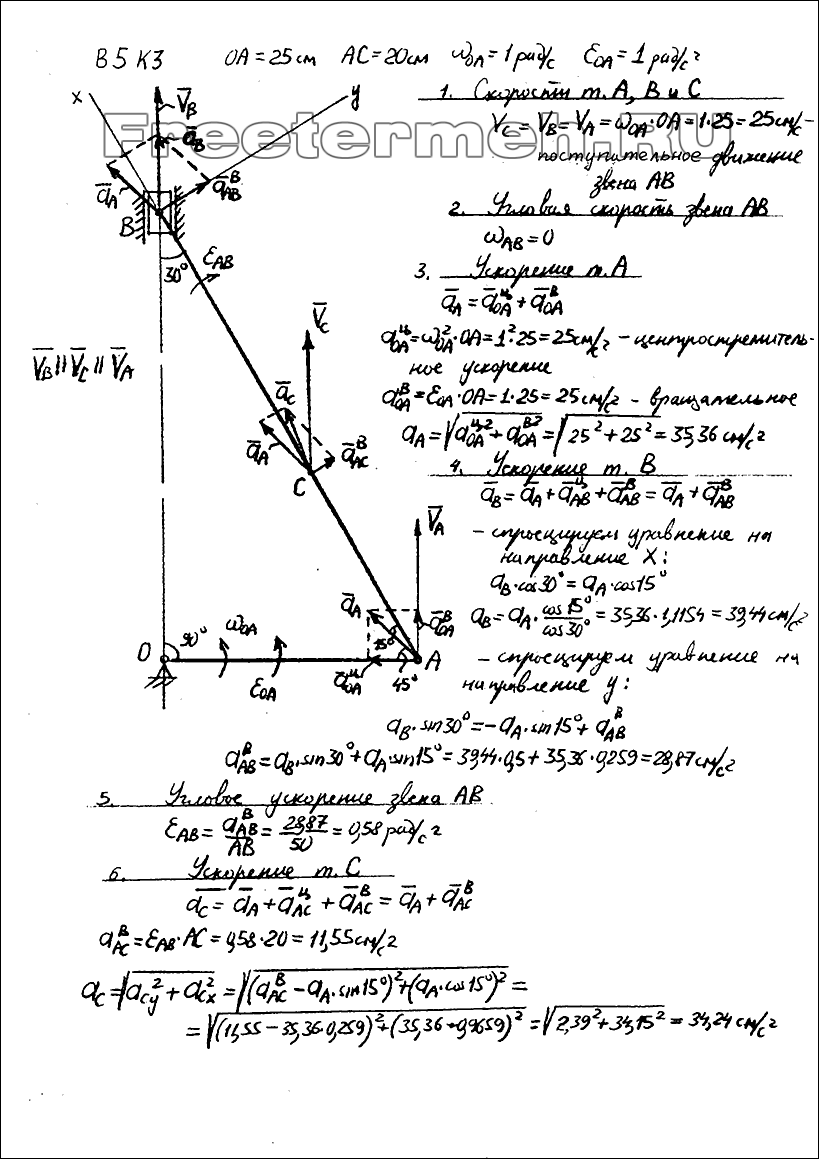 В5 К3 OA = 25 см AC = 20 см ω_OA = 1 рад/с ε_OA = 1 рад/с²
Freetermen.RU
1. Скорости т. A, B и C
V_C = V_B = V_A = ω_OA · OA = 1·25 = 25 см/с –
поступательное движение
звена AB
2. Угловая скорость звена AB
ω_AB = 0
3. Ускорение т. A
a̅_A = a̅_OA^ц + a̅_OA^в
a_OA^ц = ω_OA² · OA = 1²·25 = 25 см/с² – центростремитель-
ное ускорение
a_OA^в = ε_OA · OA = 1·25 = 25 см/с² – вращательное
a_A = √(a_OA^ц² + a_OA^в²) = √(25² + 25²) = 35,36 см/с²
4. Ускорение т. B
a̅_B = a̅_A + a̅_AB^ц + a̅_AB^в = a̅_A + a̅_AB^в
– спроецируем уравнение на
направление X:
a_B · cos30° = a_A · cos15°
a_B = a_A · cos15°/cos30° = 35,36 · 1,1154 = 39,44 см/с²
– спроецируем уравнение на
направление y:
a_B · sin30° = –a_A · sin15° + a_AB^в
a_AB^в = a_B · sin30° + a_A · sin15° = 39,44·0,5 + 35,36·0,259 = 28,87 см/с²
5. Угловое ускорение звена AB
ε_AB = a_AB^в/AB = 28,87/50 = 0,58 рад/с²
6. Ускорение т. C
a̅_C = a̅_A + a̅_AC^ц + a̅_AC^в = a̅_A + a̅_AC^в
a_AC^в = ε_AB · AC = 0,58 · 20 = 11,55 см/с²
a_C = √(a_Cy² + a_Cx²) = √((a_AC^в – a_A · sin15°)² + (a_A · cos15°)²) =
= √((11,55 – 35,36·0,259)² + (35,36·0,9659)²) = √(2,39² + 34,15²) = 34,24 см/с²
x
V̅_B
y
a̅_B
a̅_A
a̅_AB^в
B
30°
ε_AB
V̅_B || V̅_C || V̅_A
V̅_C
a̅_C
a̅_A
a̅_AC^в
C
V̅_A
a̅_A
a̅_OA^в
15°
O
90°
ω_OA
ε_OA
a̅_OA^ц
45°
A